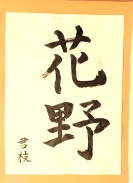 花野
君枝